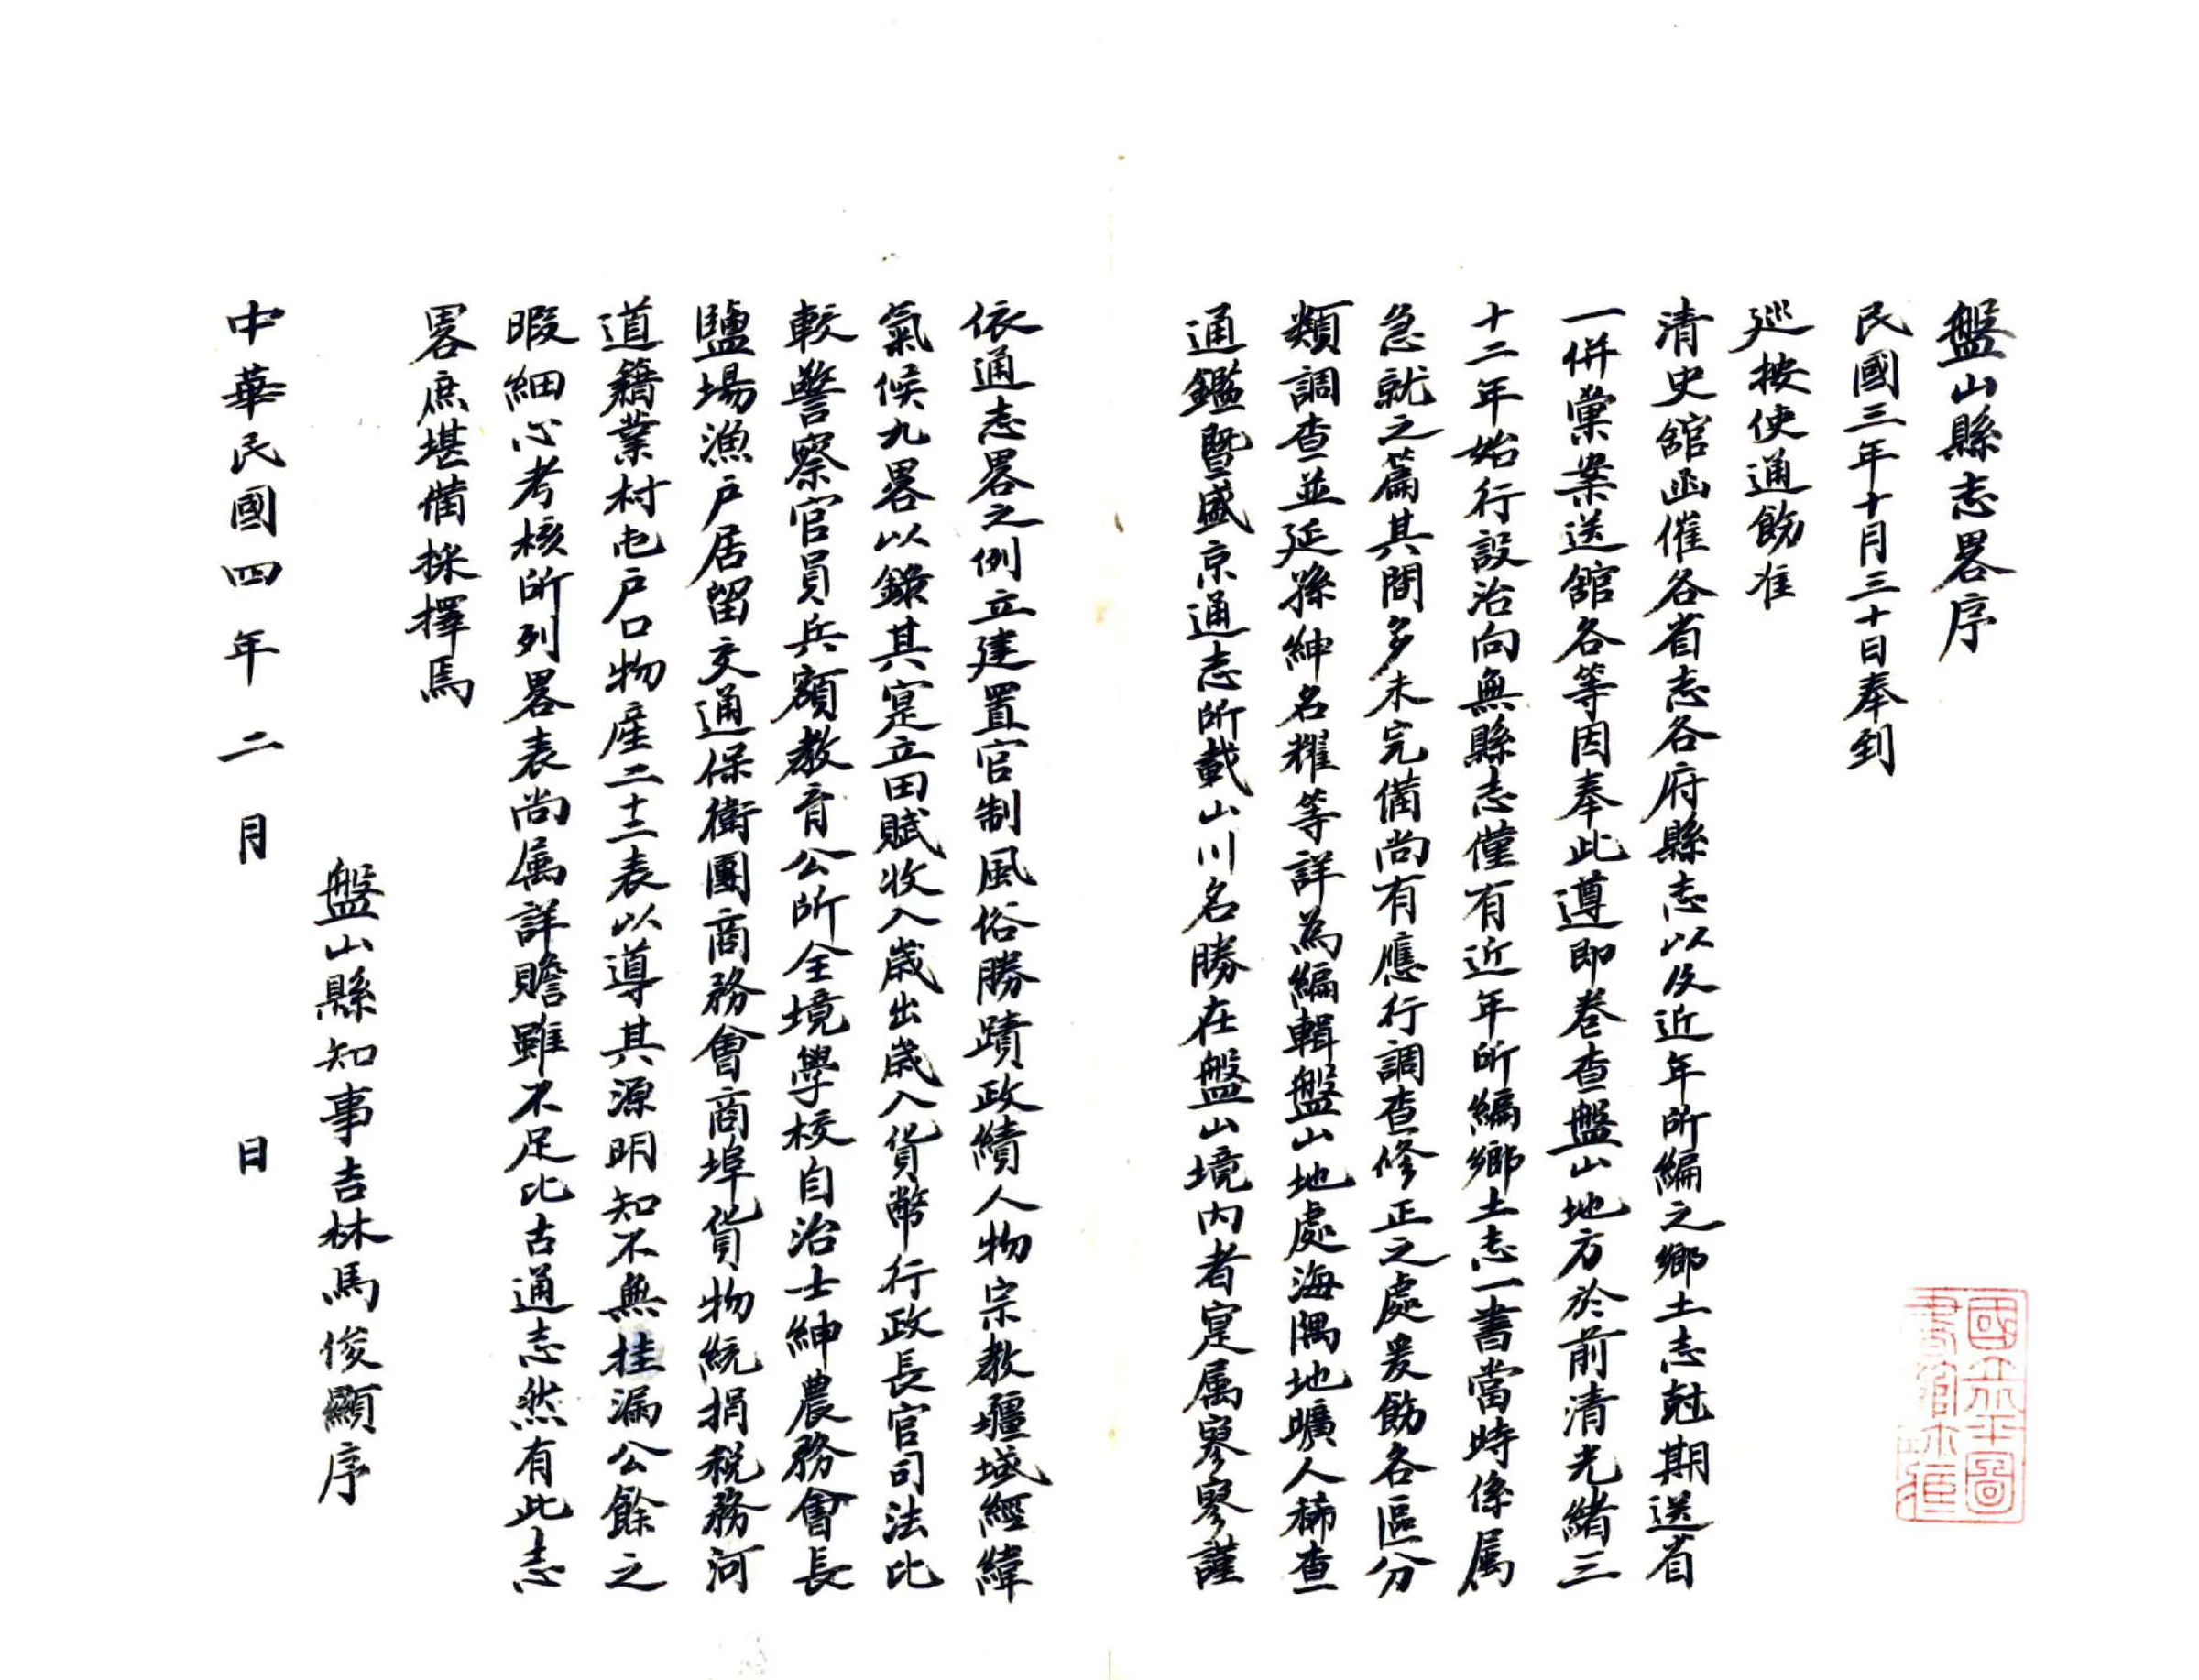 盤山縣志畧序
民國三年十月三十日奉到
廵按使通飭准
清史舘函催各省志各府縣志以及近年所編之鄉土志尅期送省
一併彙案送舘各等因奉此遵即卷查盤山地方於前清光緒三
十二年始行設治向無縣志僅有近年所編鄉土志一書當時係属
急就之篇其間多未完備尚有應行調查修正之處爰飭各區分
類調查並延孫紳名耀等詳為編輯盤山地處海隅地曠人稀查
通鑑暨盛京通志所載山川名勝在盤山境內者寔属寥寥謹
依通志畧之例立建置官制風俗勝蹟政績人物宗教疆域經緯
氣候九畧以錄其寔立田賦收入歲出歲入貨幣行政長官司法比
較警察官員兵額教育公所全境學校自治士紳農務會長
鹽場漁戶居留交通保衛團商務會商埠貨物統捐稅務河
道籍業村屯戶口物産二十三表以導其源明知不無挂漏公餘之
暇細心考核所列畧表尚属詳贍雖不足比古通志然有此志
畧庶堪備採擇焉
盤山縣知事吉林馬俊顯序
中華民國四年二月　日
國立北平圖
書館收藏